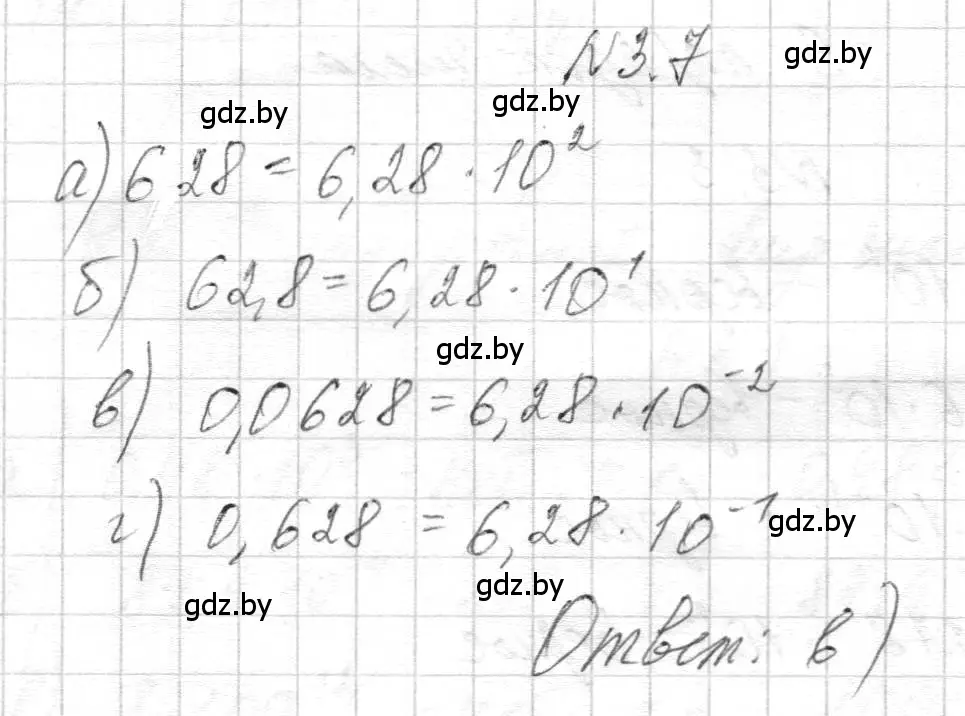 N 3.7 gdz.by
gdz.by gdz.by
а) 628 = 6,28 · 10²
б) 62,8 = 6,28 · 10¹
gdz.by
в) 0,0628 = 6,28 · 10⁻²
г) 0,628 = 6,28 · 10⁻¹ gdz.by
gdz.by gdz.by
Ответ: в)